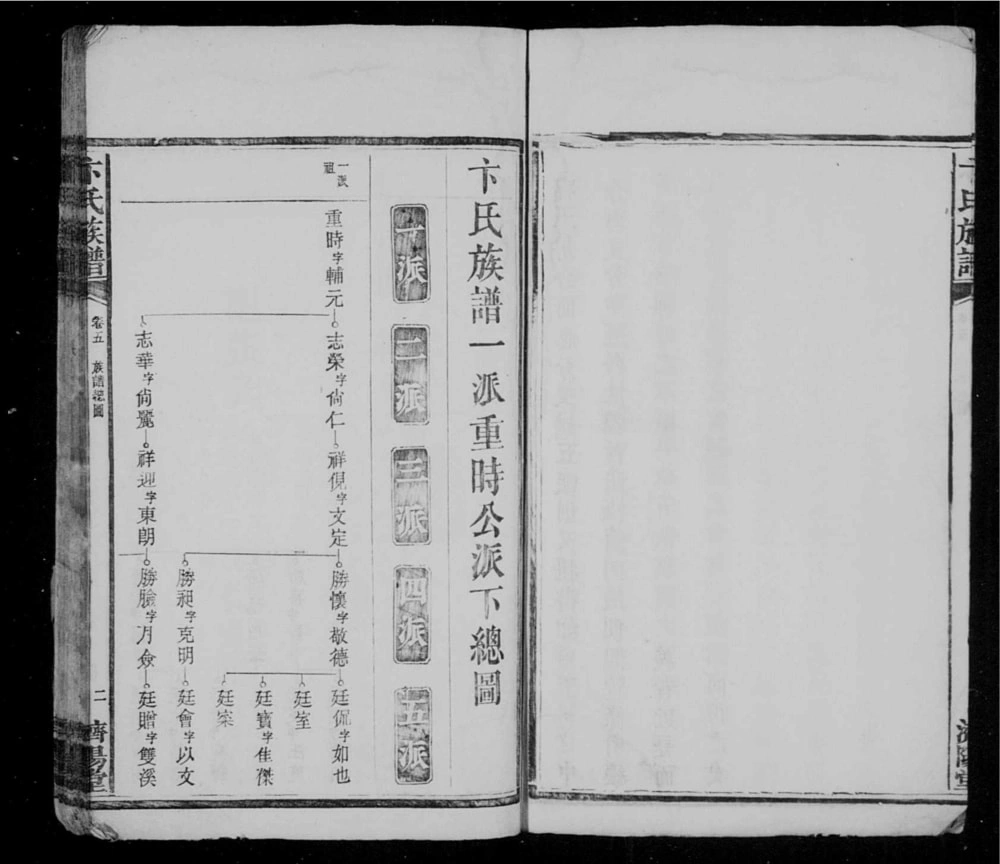 卞氏族譜一派重時公派下總圖
一派
二派
三派
四派
五派
一派祖
重時字輔元
志榮字尙仁
祥俔字文定
勝懷字敬德
廷侃字如也
廷室
廷寶字隹傑
廷寀
勝昶字克明
廷會字以文
志華字尙麗
祥迎字東朗
勝臉字月僉
廷贈字雙溪
卞氏族譜
卷五
族譜總圖
二
濟陽堂
卞氏族譜
濟陽堂